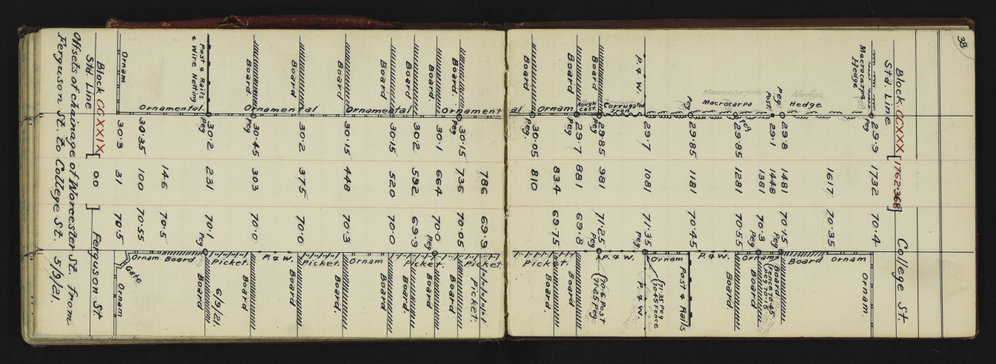 38
Block CCXXX [1762.368] College St.
Std Line
Macrocarpa Hedge
Peg 29.9 1732 70.4 Ornam.
1617 70.35 Ornam
Hedge
Peg 29.8 1481 70.15 Peg Board
Post 29.1 1448 70.3 Peg
1381 Ornam
Macrocarpa
Peg 29.85 1281 70.25
29.85 1181 70.45 P. & W.
Post & Rails
P. & W. 29.7 1081 71.35 Peg Ornam
P. & W.
Corrugated Iron
Board Peg 29.85 981 71.25 Peg P. & W.
Rough Cast
Board Peg 29.7 881 69.8 Board
834 69.75 Picket
Ornam
Board Peg 30.05 810 Board.
Ornamental
786 69.9
Picket
Board Peg 30.15 736 70.05 Board
Board 30.1 664 70.0 Peg Board
Picket
Board 30.2 592 69.9 Board
Board 30.15 520 70.0 Board
Ornamental Ornam
Board 30.15 448 70.3 Board
Picket
Board 30.2 375 70.0 Board
Ornamental P. & W.
Board Peg 30.45 303 70.0 Board
Picket 6/9/21.
Post & Rails & Wire Netting Peg 30.2 231 70.1 Peg Board
Ornamental 146 70.5 Board
30.35 100 70.55 Ornam
Gate
Ornam 30.3 31 70.5 Ornam
Block CCXXIX [0.0] Ferguson St.
Std. Line
Offsets of chainage of Worcester St. from
Ferguson St. to College St. 5/9/21.